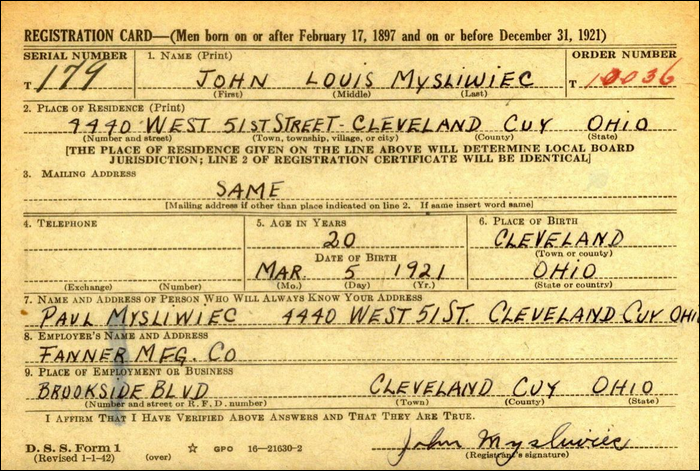 REGISTRATION CARD—(Men born on or after February 17, 1897 and on or before December 31, 1921)
SERIAL NUMBER 1. NAME (Print) ORDER NUMBER
T 179 JOHN LOUIS MYSLIWIEC T 10036
(First) (Middle) (Last)
2. PLACE OF RESIDENCE (Print)
4440 WEST 51ST STREET - CLEVELAND CUY OHIO
(Number and street) (Town, township, village, or city) (County) (State)
[THE PLACE OF RESIDENCE GIVEN ON THE LINE ABOVE WILL DETERMINE LOCAL BOARD
JURISDICTION; LINE 2 OF REGISTRATION CERTIFICATE WILL BE IDENTICAL]
3. MAILING ADDRESS
SAME
[Mailing address if other than place indicated on line 2. If same insert word same]
4. TELEPHONE 5. AGE IN YEARS 6. PLACE OF BIRTH
20 CLEVELAND
DATE OF BIRTH (Town or county)
MAR. 5 1921 OHIO
(Exchange) (Number) (Mo.) (Day) (Yr.) (State or country)
7. NAME AND ADDRESS OF PERSON WHO WILL ALWAYS KNOW YOUR ADDRESS
PAUL MYSLIWIEC 4440 WEST 51 ST. CLEVELAND CUY OHI
8. EMPLOYER'S NAME AND ADDRESS
FANNER MFG. CO
9. PLACE OF EMPLOYMENT OR BUSINESS
BROOKSIDE BLVD CLEVELAND CUY OHIO
(Number and street or R. F. D. number) (Town) (County) (State)
I AFFIRM THAT I HAVE VERIFIED ABOVE ANSWERS AND THAT THEY ARE TRUE.
D. S. S. Form 1 GPO 16—21630-2 John Mysliwiec
(Revised 1-1-42) (over) (Registrant's signature)